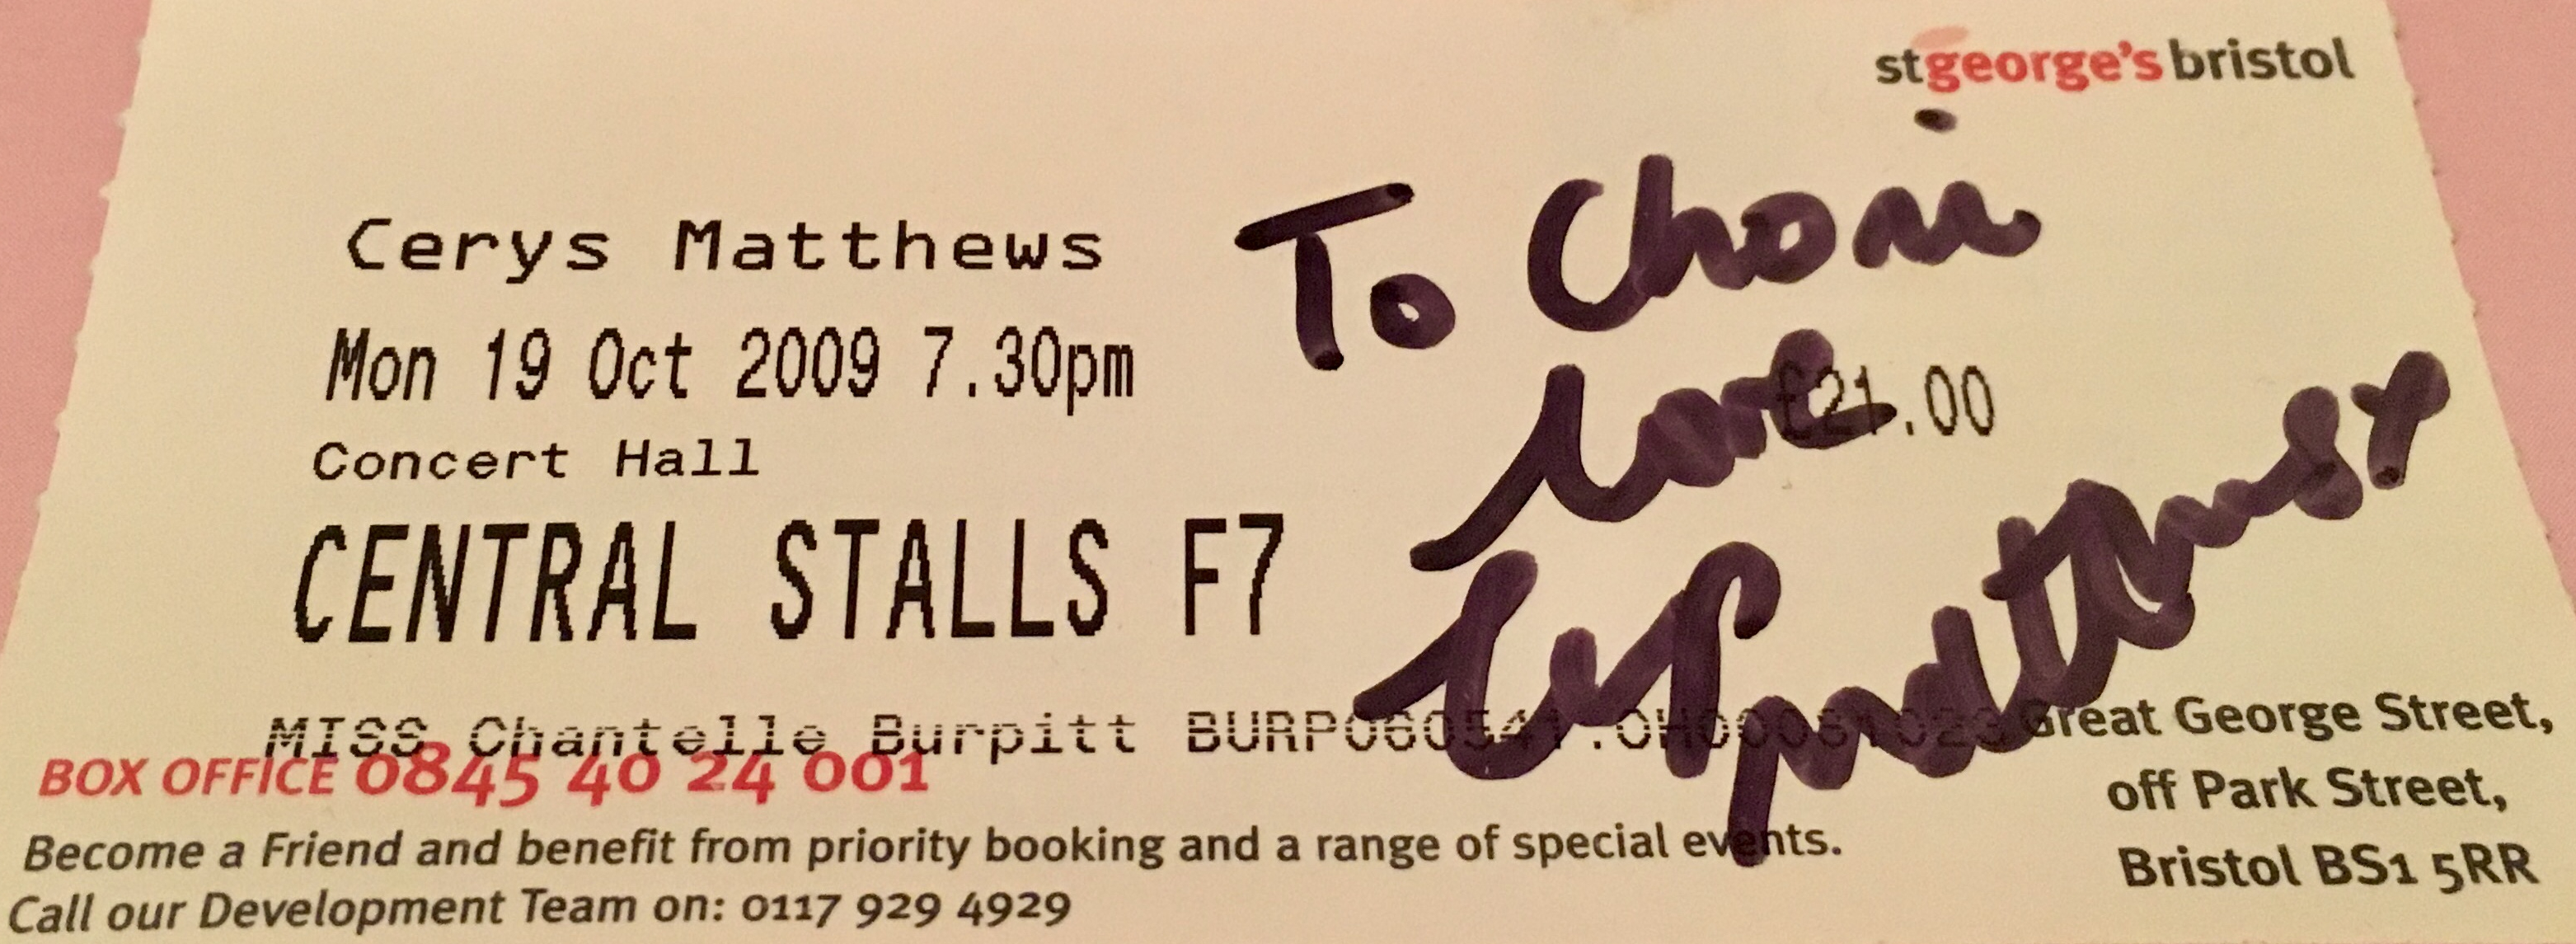 stgeorge'sbristol
To Choni
Cerys Matthews
Mon 19 Oct 2009 7.30pm
love
£21.00
Concert Hall
CENTRAL STALLS F7
MISS Chantelle Burpitt
Great George Street,
BOX OFFICE 0845 40 24 001
off Park Street,
Become a Friend and benefit from priority booking and a range of special events.
Bristol BS1 5RR
Call our Development Team on: 0117 929 4929